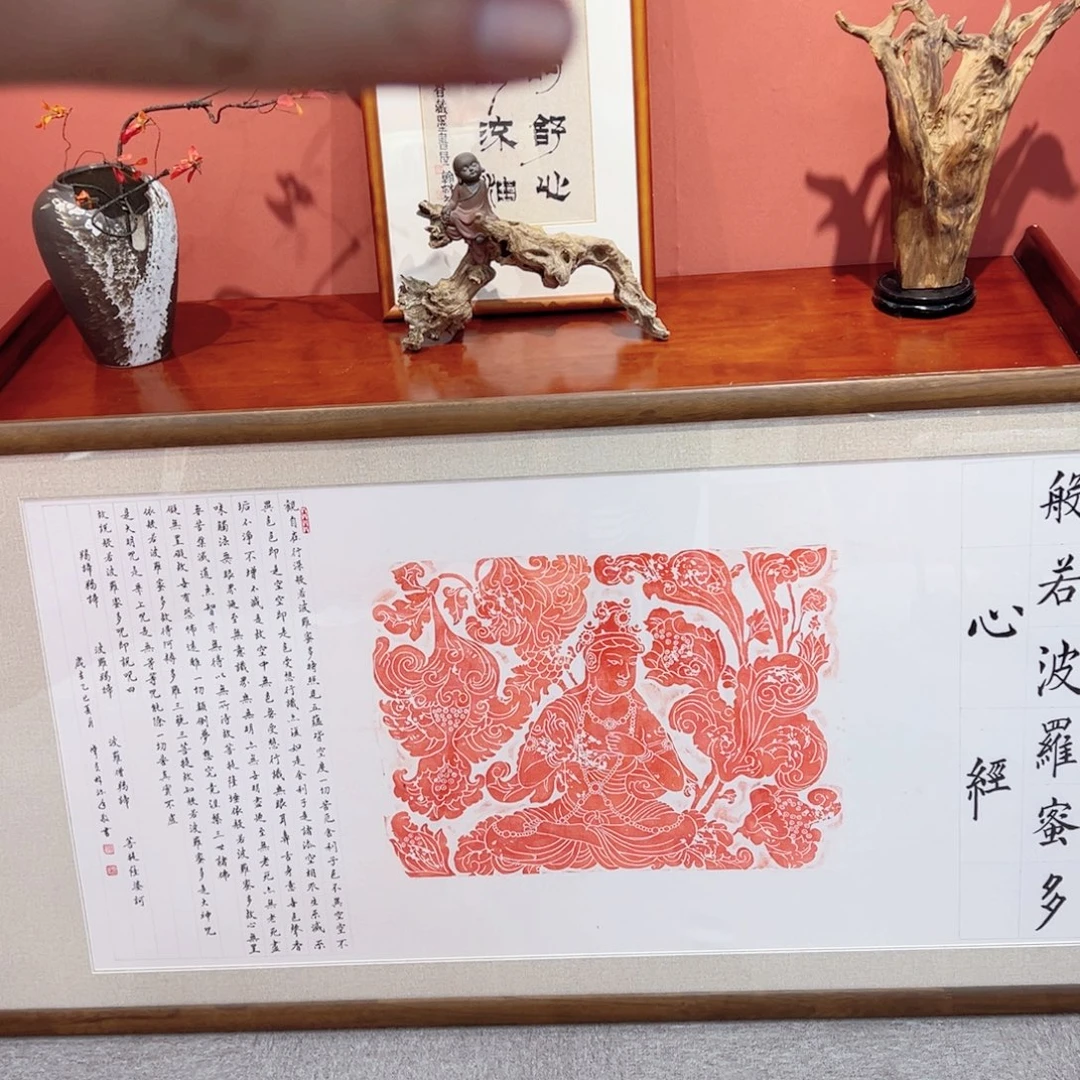 舒心
般若波羅蜜多
心經
觀自在行深般若波羅蜜多時照見五蘊皆空度一切苦厄舍利子色不異空空不
異色色即是空空即是色受想行識亦復如是舍利子是諸法空相不生不滅不
垢不淨不增不減是故空中無色無受想行識無眼耳鼻舌身意無色聲香
味觸法無眼界乃至無意識界無無明亦無無明盡乃至無老死亦無老死盡
無苦集滅道無智亦無得以無所得故菩提薩埵依般若波羅蜜多故心無罣
礙無罣礙故無有恐怖遠離一切顛倒夢想究竟涅槃三世諸佛
依般若波羅蜜多故得阿耨多羅三藐三菩提故知般若波羅蜜多是大神咒
是大明咒是無上咒是無等等咒能除一切苦真實不虛
故說般若波羅蜜多咒即說咒曰
揭諦揭諦 波羅揭諦 波羅僧揭諦 菩提薩婆訶
歲在乙巳夏月